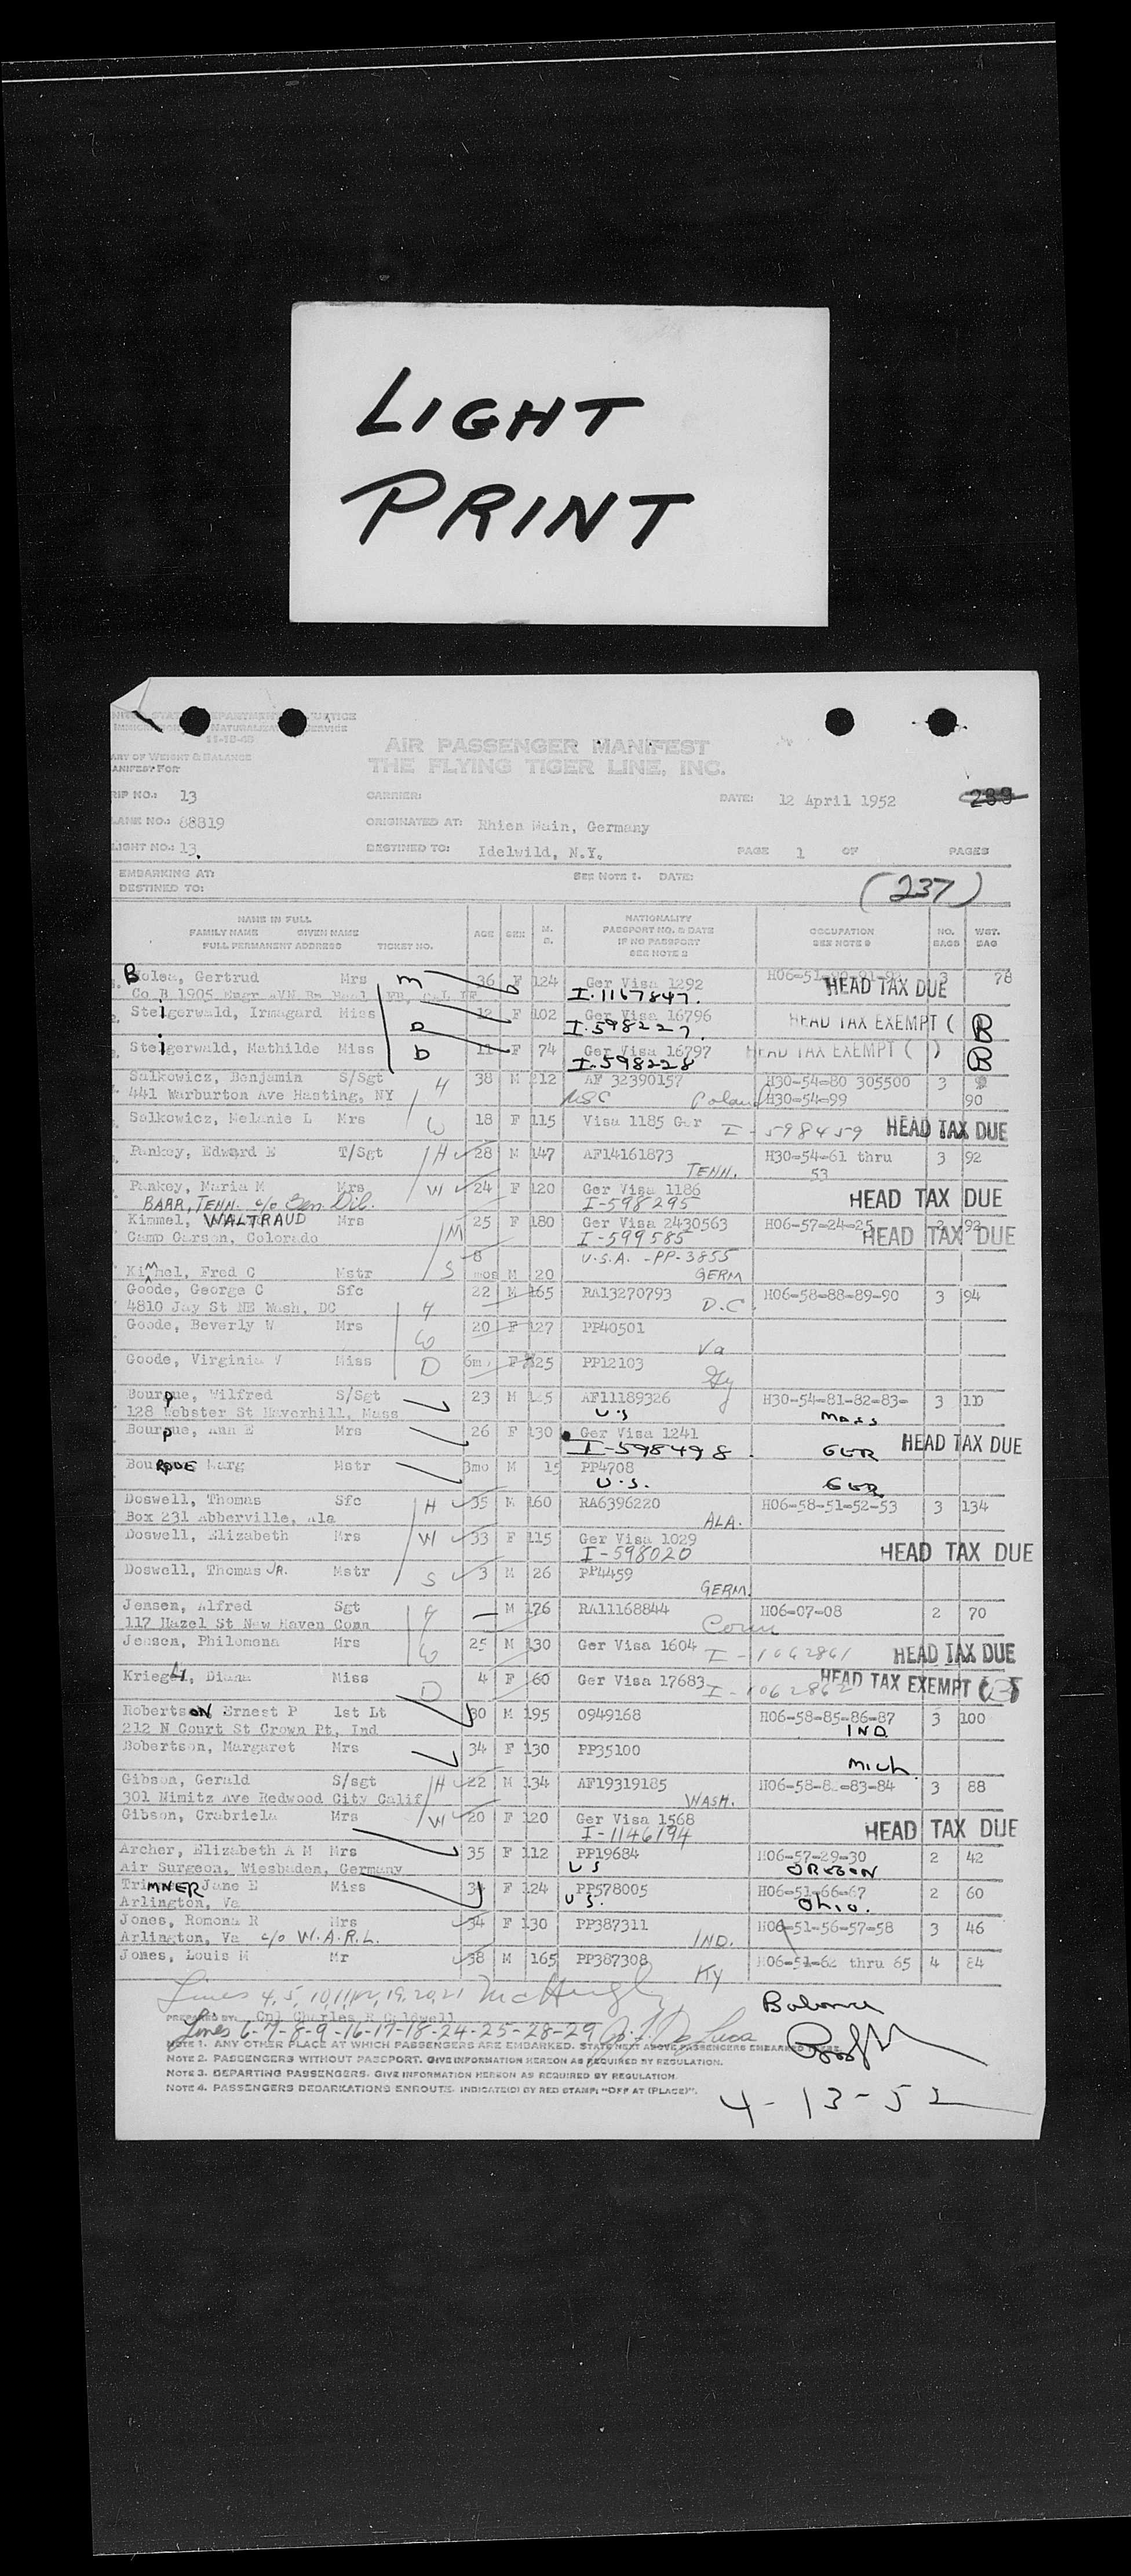 LIGHT
PRINT
AIR PASSENGER MANIFEST
THE FLYING TIGER LINE, INC.
TRIP NO.: 13 CARRIER: DATE: 12 April 1952
PLANE NO.: 88819 ORIGINATED AT: Rhien Main, Germany
FLIGHT NO.: 13. DESTINED TO: Idelwild, N.Y. PAGE 1 OF PAGES
EMBARKING AT: SEE NOTE 1. DATE:
DESTINED TO: (237)
NAME IN FULL NATIONALITY
FAMILY NAME GIVEN NAME AGE SEX M. S. PASSPORT NO. & DATE OCCUPATION NO. WGT.
FULL PERMANENT ADDRESS TICKET NO. IF NO PASSPORT SEE NOTE 2 BAGS BAG
SEE NOTE 2
Gertrud Mrs m 36 F 124 Ger Visa 1292 3 78
I.1167847. HEAD TAX DUE
Steigerwald, Irmagard Miss D 12 F 102 Ger Visa 16796 HEAD TAX EXEMPT ( B
I.598227.
Steigerwald, Mathilde Miss D 11 F 74 Ger Visa 16797 HEAD TAX EXEMPT ( ) B
I.598228
Salkowicz, Benjamin S/Sgt H 38 M 212 AF 32390157 H30-54-80 305500 3
441 Warburton Ave Hasting, NY Poland H30-54-99 90
Salkowicz, Melanie L Mrs W 18 F 115 Visa 1185 Ger I-598459 HEAD TAX DUE
Pankey, Edward E T/Sgt H 28 M 147 AF14161873 H30-54-61 thru 3 92
TENN. 53
Pankey, Maria M Mrs W 24 F 120 Ger Visa 1186 HEAD TAX DUE
BARR, TENN. c/o Gen. Del. I-598295
Kimmel, WALTRAUD Mrs M 25 F 180 Ger Visa 2430563 H06-57-24-25 2 92
Camp Carson, Colorado I-599585 HEAD TAX DUE
8 U.S.A. -PP-3855
Kimmel, Fred C Mstr S mos M 20 GERM
Goode, George C Sfc H 22 M 165 RA13270793 H06-58-88-89-90 3 94
4810 Jay St NE Wash, DC D.C.
Goode, Beverly W Mrs W 20 F 127 PP40501
Va
Goode, Virginia V Miss D 6mo F 25 PP12103
Bourque, Wilfred S/Sgt 23 M AF11189326 H30-54-81-82-83- 3 110
128 Webster St Haverhill, Mass U.S Mass
Ann E Mrs 26 F 130 Ger Visa 1241 HEAD TAX DUE
I-598498. GER
Marg Mstr 3mo M 15 PP4708
U.S. GER
Doswell, Thomas Sfc H 35 M 160 RA6396220 H06-58-51-52-53 3 134
Box 231 Abberville, Ala ALA.
Doswell, Elizabeth Mrs W 33 F 115 Ger Visa 1029
I-598020 HEAD TAX DUE
Doswell, Thomas JR. Mstr S 3 M 26 PP4459
GERM.
Jensen, Alfred Sgt H M 176 RA11168844 H06-07-08 2 70
117 Hazel St New Haven Conn Conn
Jensen, Philomena Mrs W 25 M 130 Ger Visa 1604 I-1062861 HEAD TAX DUE
Diana Miss D 4 F 60 Ger Visa 17683 I-1062862 HEAD TAX EXEMPT
RobertsON Ernest P 1st Lt 30 M 195 0949168 H06-58-85-86-87 3 100
212 N Court St Crown Pt, Ind IND.
Robertson, Margaret Mrs 34 F 130 PP35100
Mich.
Gibson, Gerald S/sgt H 22 M 134 AF19319185 3 88
301 Nimitz Ave Redwood City Calif WASH.
Gibson, Crabriela Mrs W 20 F 120 Ger Visa 1568
I-1146194 HEAD TAX DUE
Archer, Elizabeth A M Mrs 35 F 112 PP19684 H06-57-29-30 2 42
Air Surgeon, Wiesbaden, Germany US OREGON
TriMMER Jane E Miss 34 F 124 PP578005 H06-51-66-67 2 60
Arlington, Va U.S. Ohio.
Jones, Romona R Mrs 34 F 130 PP387311 H06-51-56-57-58 3 46
Arlington, Va c/o W.A.R.L. IND.
Jones, Louis M Mr 38 M 165 PP387308 H06-51-62 thru 65 4 84
Ky
Lines 4, 5, 10, 11, 12, 19, 20, 21 McHugh Balance
PREPARED BY: Cpl Charles R Caldwell
Lines 6-7-8-9-16-17-18-24-25-28-29
NOTE 1. ANY OTHER PLACE AT WHICH PASSENGERS ARE EMBARKED. STATE NEXT ABOVE PASSENGERS EMBARKED THERE.
NOTE 2. PASSENGERS WITHOUT PASSPORT. GIVE INFORMATION HEREON AS REQUIRED BY REGULATION.
NOTE 3. DEPARTING PASSENGERS. GIVE INFORMATION HEREON AS REQUIRED BY REGULATION.
NOTE 4. PASSENGERS DEBARKATIONS ENROUTE. INDICATE(D) BY RED STAMP: "OFF AT (PLACE)".
4-13-52